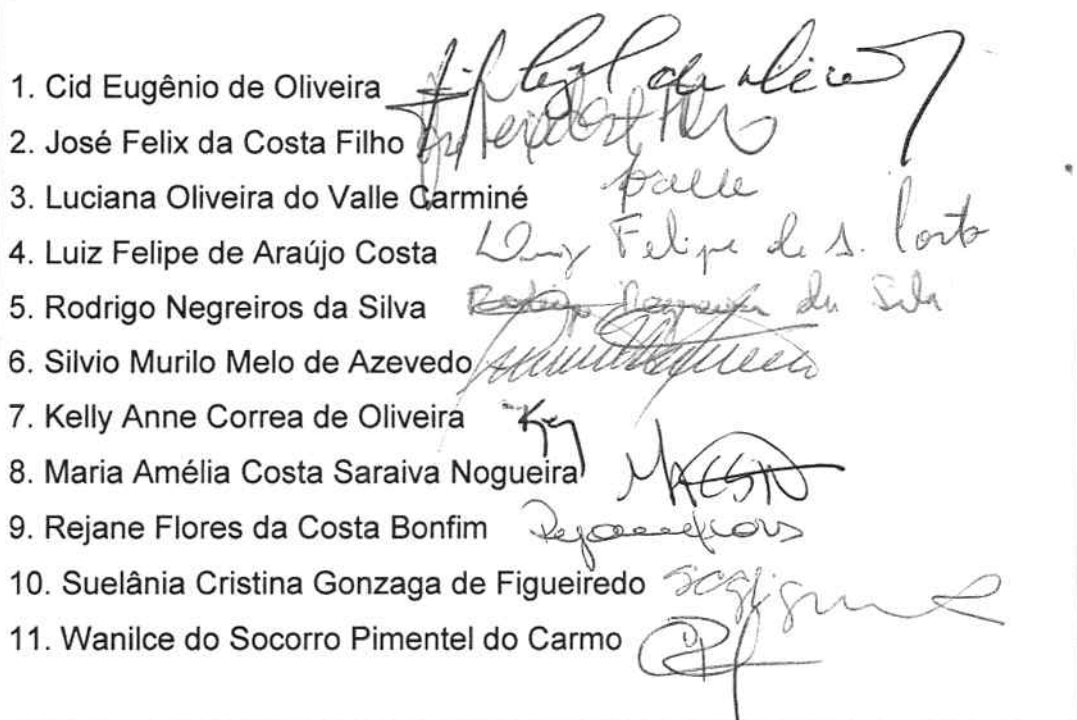 1. Cid Eugênio de Oliveira
2. José Felix da Costa Filho
3. Luciana Oliveira do Valle Carminé
valle
4. Luiz Felipe de Araújo Costa Luiz Felipe de A. Costa
5. Rodrigo Negreiros da Silva Rodrigo Negreiros da Silva
6. Silvio Murilo Melo de Azevedo
7. Kelly Anne Correa de Oliveira
8. Maria Amélia Costa Saraiva Nogueira MACSN
9. Rejane Flores da Costa Bonfim
10. Suelânia Cristina Gonzaga de Figueiredo
11. Wanilce do Socorro Pimentel do Carmo